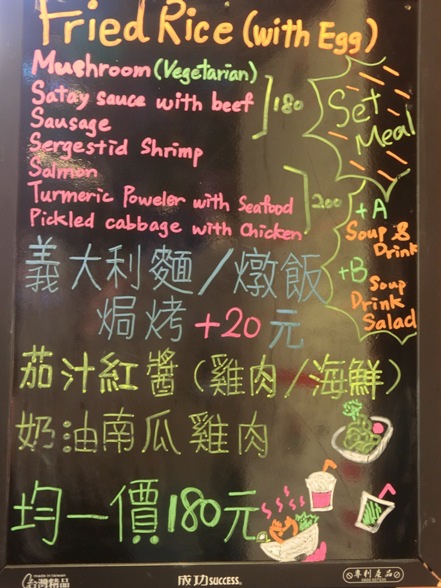 Fried Rice (with Egg)
Mushroom (Vegetarian)
Satay sauce with beef
180
Sausage
Sergestid Shrimp
Salmon
Turmeric Powder with Seafood
200
Pickled cabbage with Chicken
Set
Meal
+A
Soup &
Drink
+B
Soup
Drink
Salad
義大利麵/燉飯
焗烤+20元
茄汁紅醬(雞肉/海鮮)
奶油南瓜雞肉
均一價180元
台灣精品
成功 SUCCESS®
專利產品